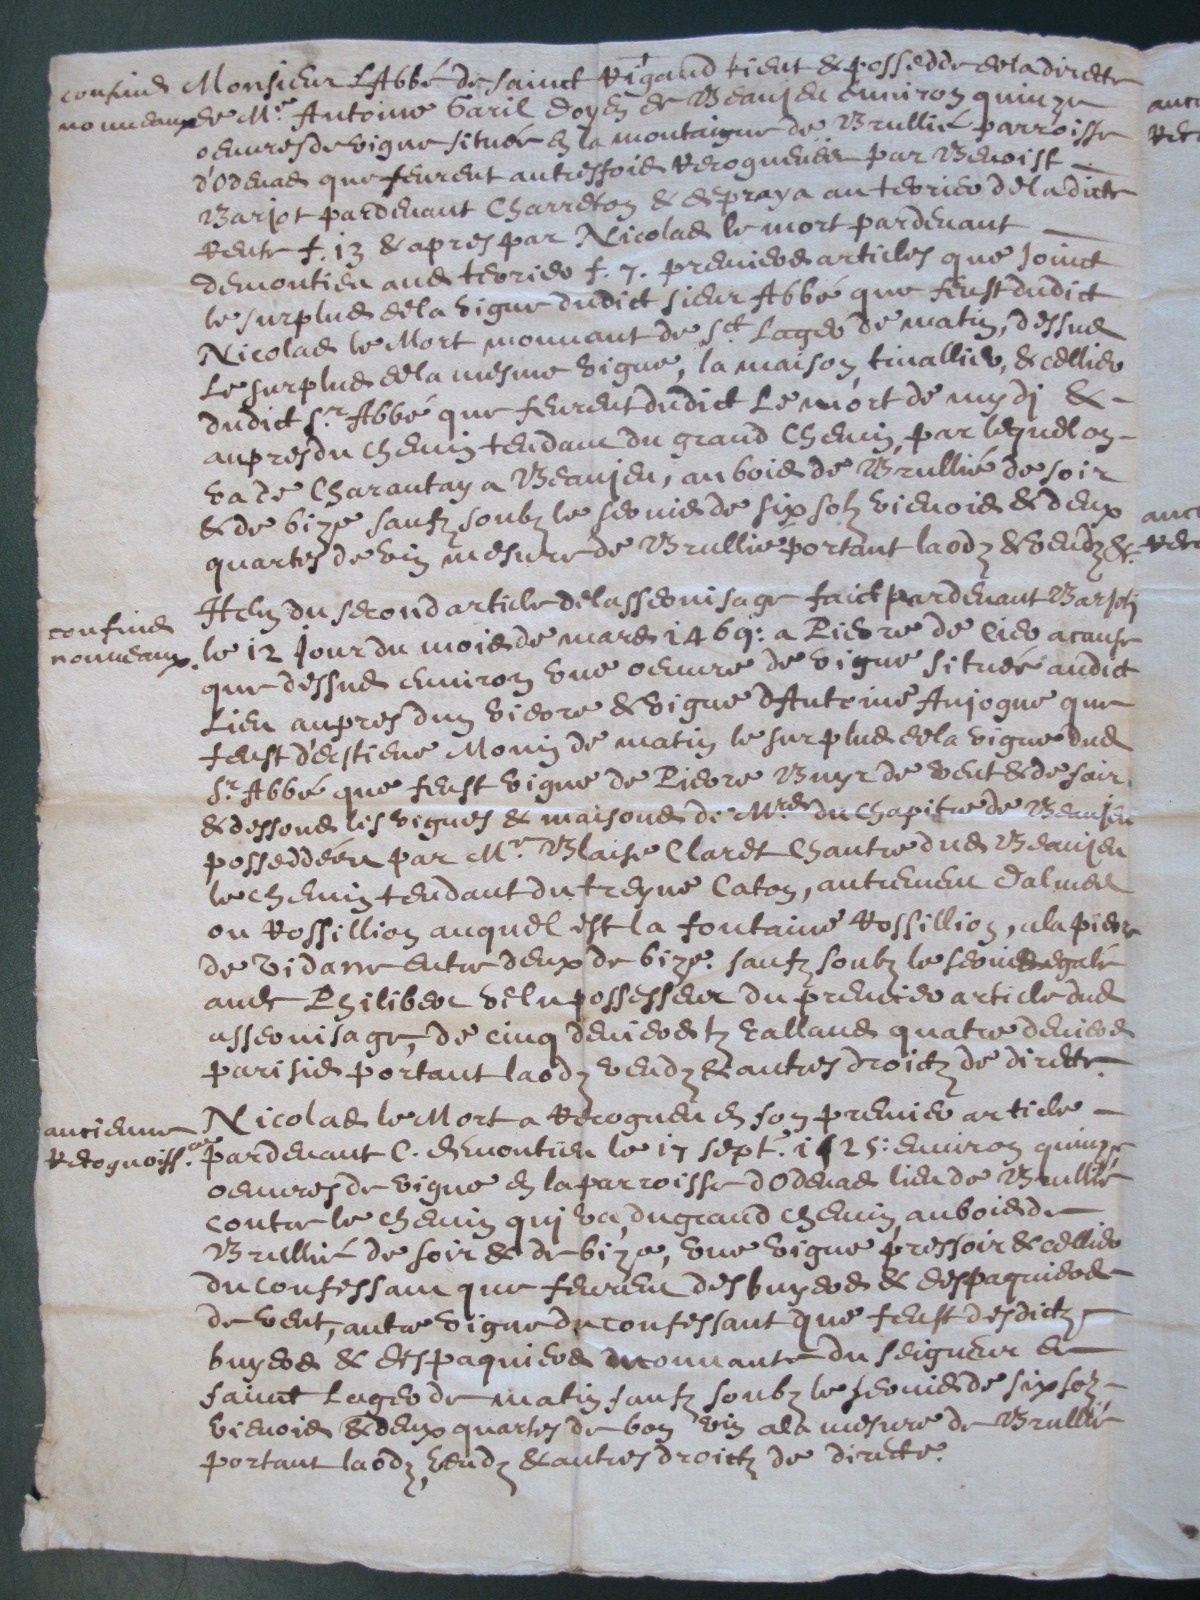 confins
nouveaux
Monsieur L'Abbé de sainct Rigaud tient & possedde de la directe
de Mre Antoine Garil doyen de Beaujeu environ quinze
oeuvres de vigne situéé en la montaigne de Brullié parroisse
d'Odenas que feurent autresfois recogneues par Benoist
Barjot pardevant Charreton & depraya au terrier de ladicte
Rente f. 13 & apres par Nicolas le mort pardevant
demontieu aud terrier f. 7. premier articles que joinct
le surplus de la vigne dudict sieur Abbé que feust dudict
Nicolas le Mort mouvant de St Lager de matin, dessus
Le surplus de la mesme vigne, la maison, tinallier, & cellier
dudict Sr Abbé que feurent dudict Le mort de mydi &
aupres du chemin tendant du grand chemin, par lequel on
va de Charantay a Beaujeu, au bois de Brullié de soir
& de bize saufz soubz le servis de six solz vienois & deux
quartes de vin mesure de Brullié portant laodz & vendz &c.
confins
nouveaux.
Item du second article de lasservisage faict pardevant Barjoti
le 12 jour du mois de mars 1469: a Pierre de Cier a cause
que dessus environ une oeuvre de vigne situéé audict
Lieu aupres dun vierre & vigne d'Antoine Aujogue que
feust d'Estiene Monin de matin le surplus de la vigne dud
Sr Abbé que feust vigne de Pierre Buyr de vent & de soir
& dessoubs les vignes & maisons de Mrs du Chapitre de Beaujeu
posseddéés par Mr Blaise Claret Chantre dud Beaujeu
le chemin tendant du treyve Caton, autrement dalmes
ou Rossillion auquel est la fontaine Rossillion, a la pierre
de vidanre entre deux de bize. saufz soubz le servis egalé
aude Philibert velu possesseur du premier article dud
asservisage, de cinq deniers tz vallans quatre deniers
parisis portant laodz vendz & autres droictz de directe.
ancienne
Recognoissce
Nicolas le Mort a Recogneu en son premier article
pardevant C. demontieu le 17 sept. 1525: environ quinze
oeuvres de vigne en la parroisse d'Odenas lieu de Brullié
contre le chemin qui va, du grand chemin au bois de
Brullié de soir & de bize, une vigne pressoir & cellier
du confessant que feurent des buyers & despaquiers
de vent, autre vigne du confessant que feust desdictz
buyers & despaquiers mouvante du seigneur de
sainct Lager de matin saufz soubz le servis de six solz
vienois & deux quartes de bon vin a la mesure de Brullié
portant laodz, vendz & autres droictz de directe.